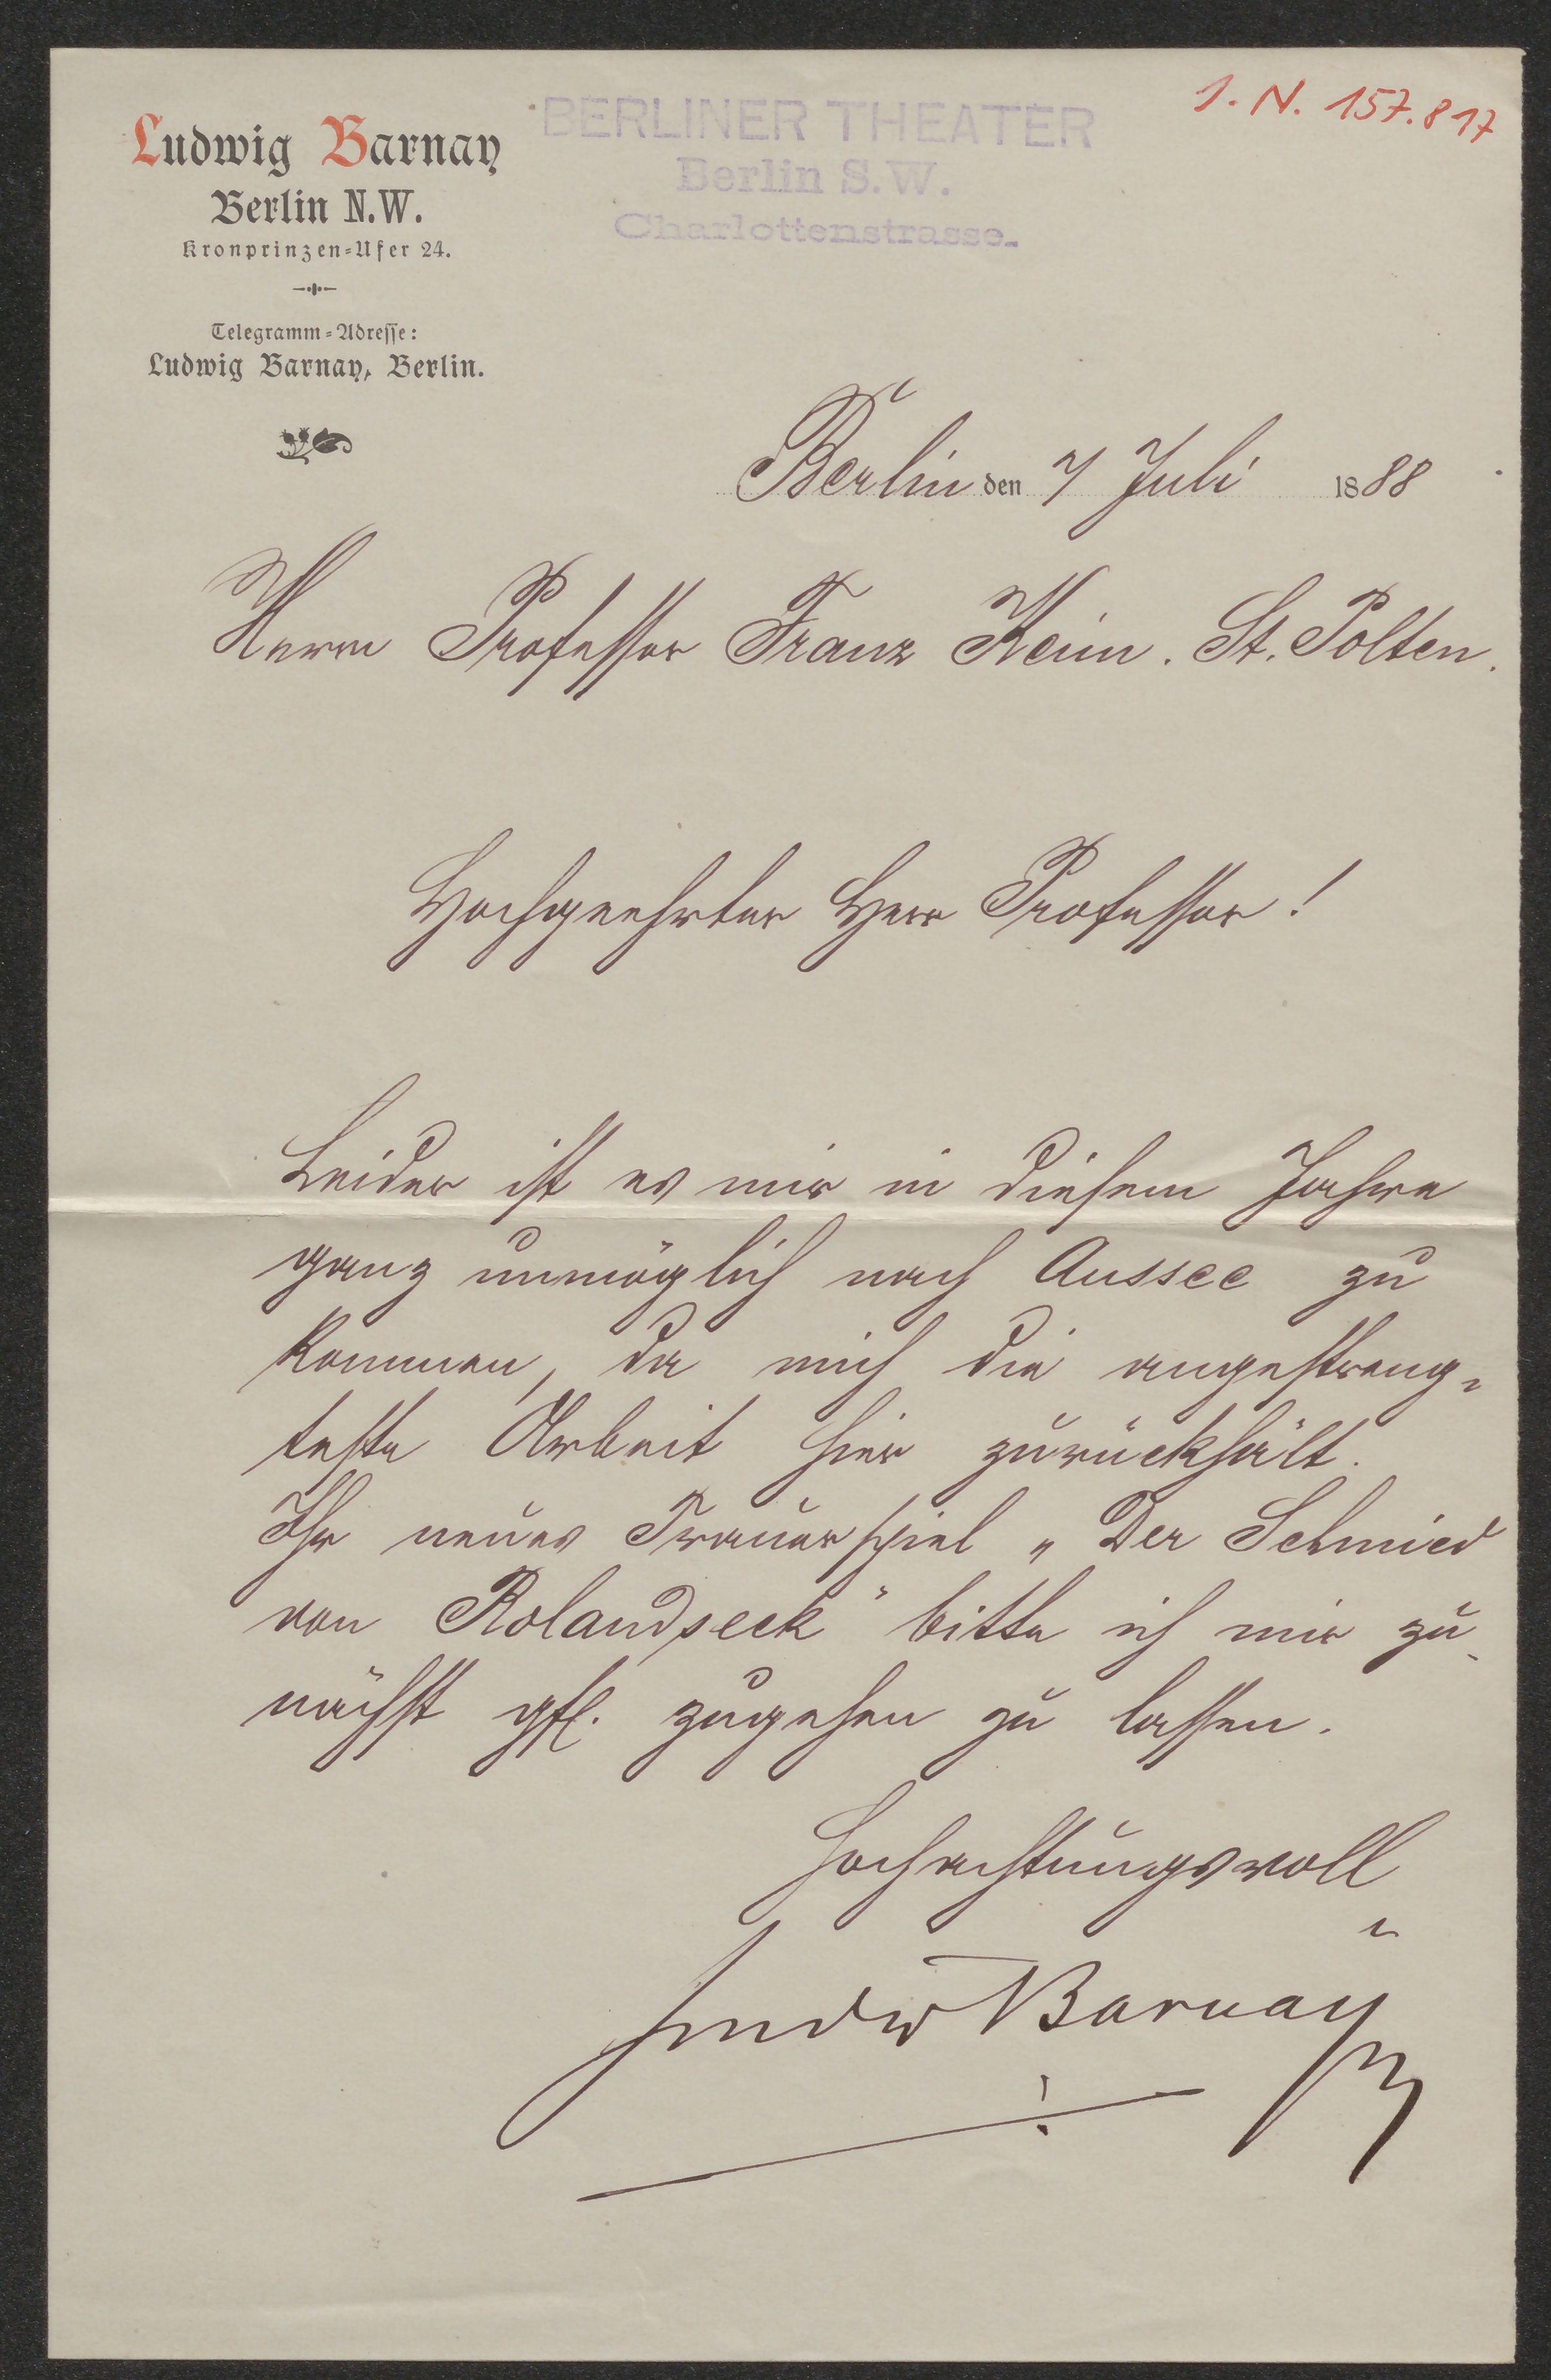 Ludwig Barnay
Berlin N.W.
Kronprinzen-Ufer 24.
Telegramm-Adresse:
Ludwig Barnay, Berlin.
BERLINER THEATER
Berlin S.W.
Charlottenstrasse.
I. N. 157.817
Berlin den 7 Juli 1888
Herrn Professor Franz Keim. St. Pölten.
Hochgeehrter Herr Professor!
Leider ist es mir in diesem Jahre
ganz unmöglich nach Aussee zu
kommen, da mich die angestreng-
teste Arbeit hier zurückhält.
Ihr neues Trauerspiel „Der Schmied
von Rolandseck" bitte ich mir zu-
nächst gfl. zugehen zu lassen.
Hochachtungsvoll
Ludw Barnay